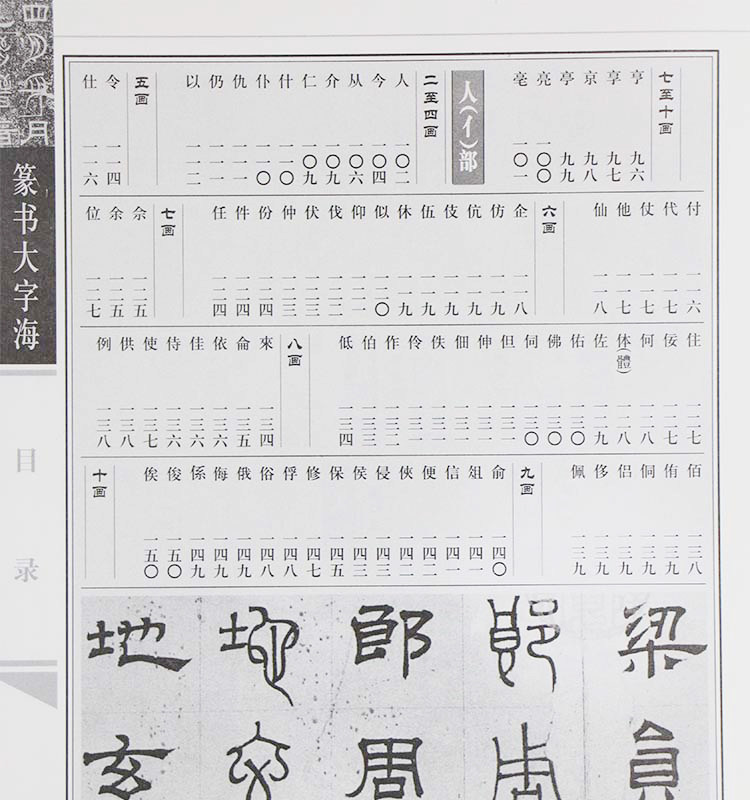 七至十画
亨 九六
享 九七
京 九八
亭 九九
亮 一〇〇
亳 一〇一
人(亻)部
二至四画
人 一〇二
今 一〇四
从 一〇六
介 一〇九
仁 一〇九
什 一一〇
仆 一一〇
仇 一一一
仍 一一一
以 一一二
五画
令 一一四
仕 一一六
付 一一六
代 一一七
仗 一一七
他 一一七
仙 一一八
六画
企 一一八
仿 一一九
伉 一一九
伎 一一九
伍 一一九
休 一一九
似 一二〇
仰 一二一
伐 一二二
伏 一二三
仲 一二三
份 一二四
件 一二四
任 一二四
七画
佘 一二五
余 一二五
位 一二七
住 一二七
佞 一二七
何 一二八
体(體) 一二八
佐 一二九
佑 一三〇
佛 一三〇
伺 一三〇
但 一三一
伸 一三一
佃 一三一
佚 一三一
伶 一三一
作 一三二
伯 一三三
低 一三四
八画
來 一三四
侖 一三五
依 一三六
佳 一三六
侍 一三六
使 一三七
供 一三八
例 一三八
佰 一三八
侑 一三九
侗 一三九
侣 一三九
侈 一三九
佩 一三九
九画
俞 一四〇
俎 一四一
信 一四一
便 一四二
俠 一四二
侵 一四三
侯 一四三
保 一四五
修 一四七
俘 一四八
俗 一四八
俄 一四九
侮 一四九
係 一四九
俊 一五〇
俟 一五〇
十画
梁員
郎周
郎周
地玄
地玄
篆书大字海
目录